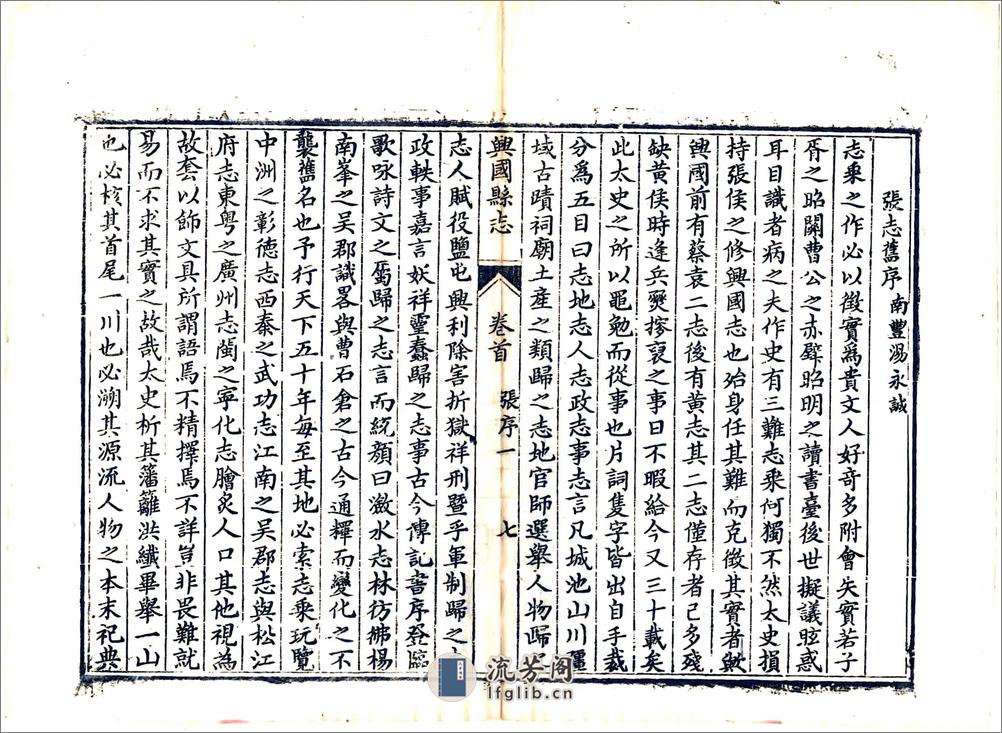 張志舊序 南豐湯永誠
志乘之作必以徵實為貴文人好奇多附會失實若子
胥之昭關曹公之赤壁昭明之讀書臺後世擬議眩惑
耳目識者病之夫作史有三難志乘何獨不然太史損
持張侯之修興國志也殆身任其難而克徵其實者歟
興國前有蔡袁二志後有黃志其二志僅存者已多殘
缺黃侯時逢兵燹搜裒之事日不暇給今又三十載矣
此太史之所以黽勉而從事也片詞隻字皆出自手裁
分為五目曰志地志人志政志事志言凡城池山川疆
域古蹟祠廟土產之類歸之志地官師選舉人物歸
興國縣志 卷首 張序一 七
志人賦役鹽屯興利除害折獄祥刑暨乎軍制歸之
政軼事嘉言妖祥靈蠢歸之志事古今傳記書序登臨
歌咏詩文之屬歸之志言而統顏曰瀲水志林彷彿楊
南峯之吳郡識畧與曹石倉之古今通釋而變化之不
襲舊名也予行天下五十年每至其地必索志乘玩覽
中洲之彰德志西秦之武功志江南之吳郡志與松江
府志東粤之廣州志閩之寧化志膾炙人口其他視為
故套以飾文具所謂語焉不精擇焉不詳豈非畏難就
易而不求其實之故哉太史析其藩籬洪纖畢舉一山
也必核其首尾一川也必溯其源流人物之本末祀典
流芳阁
lfglib.cn